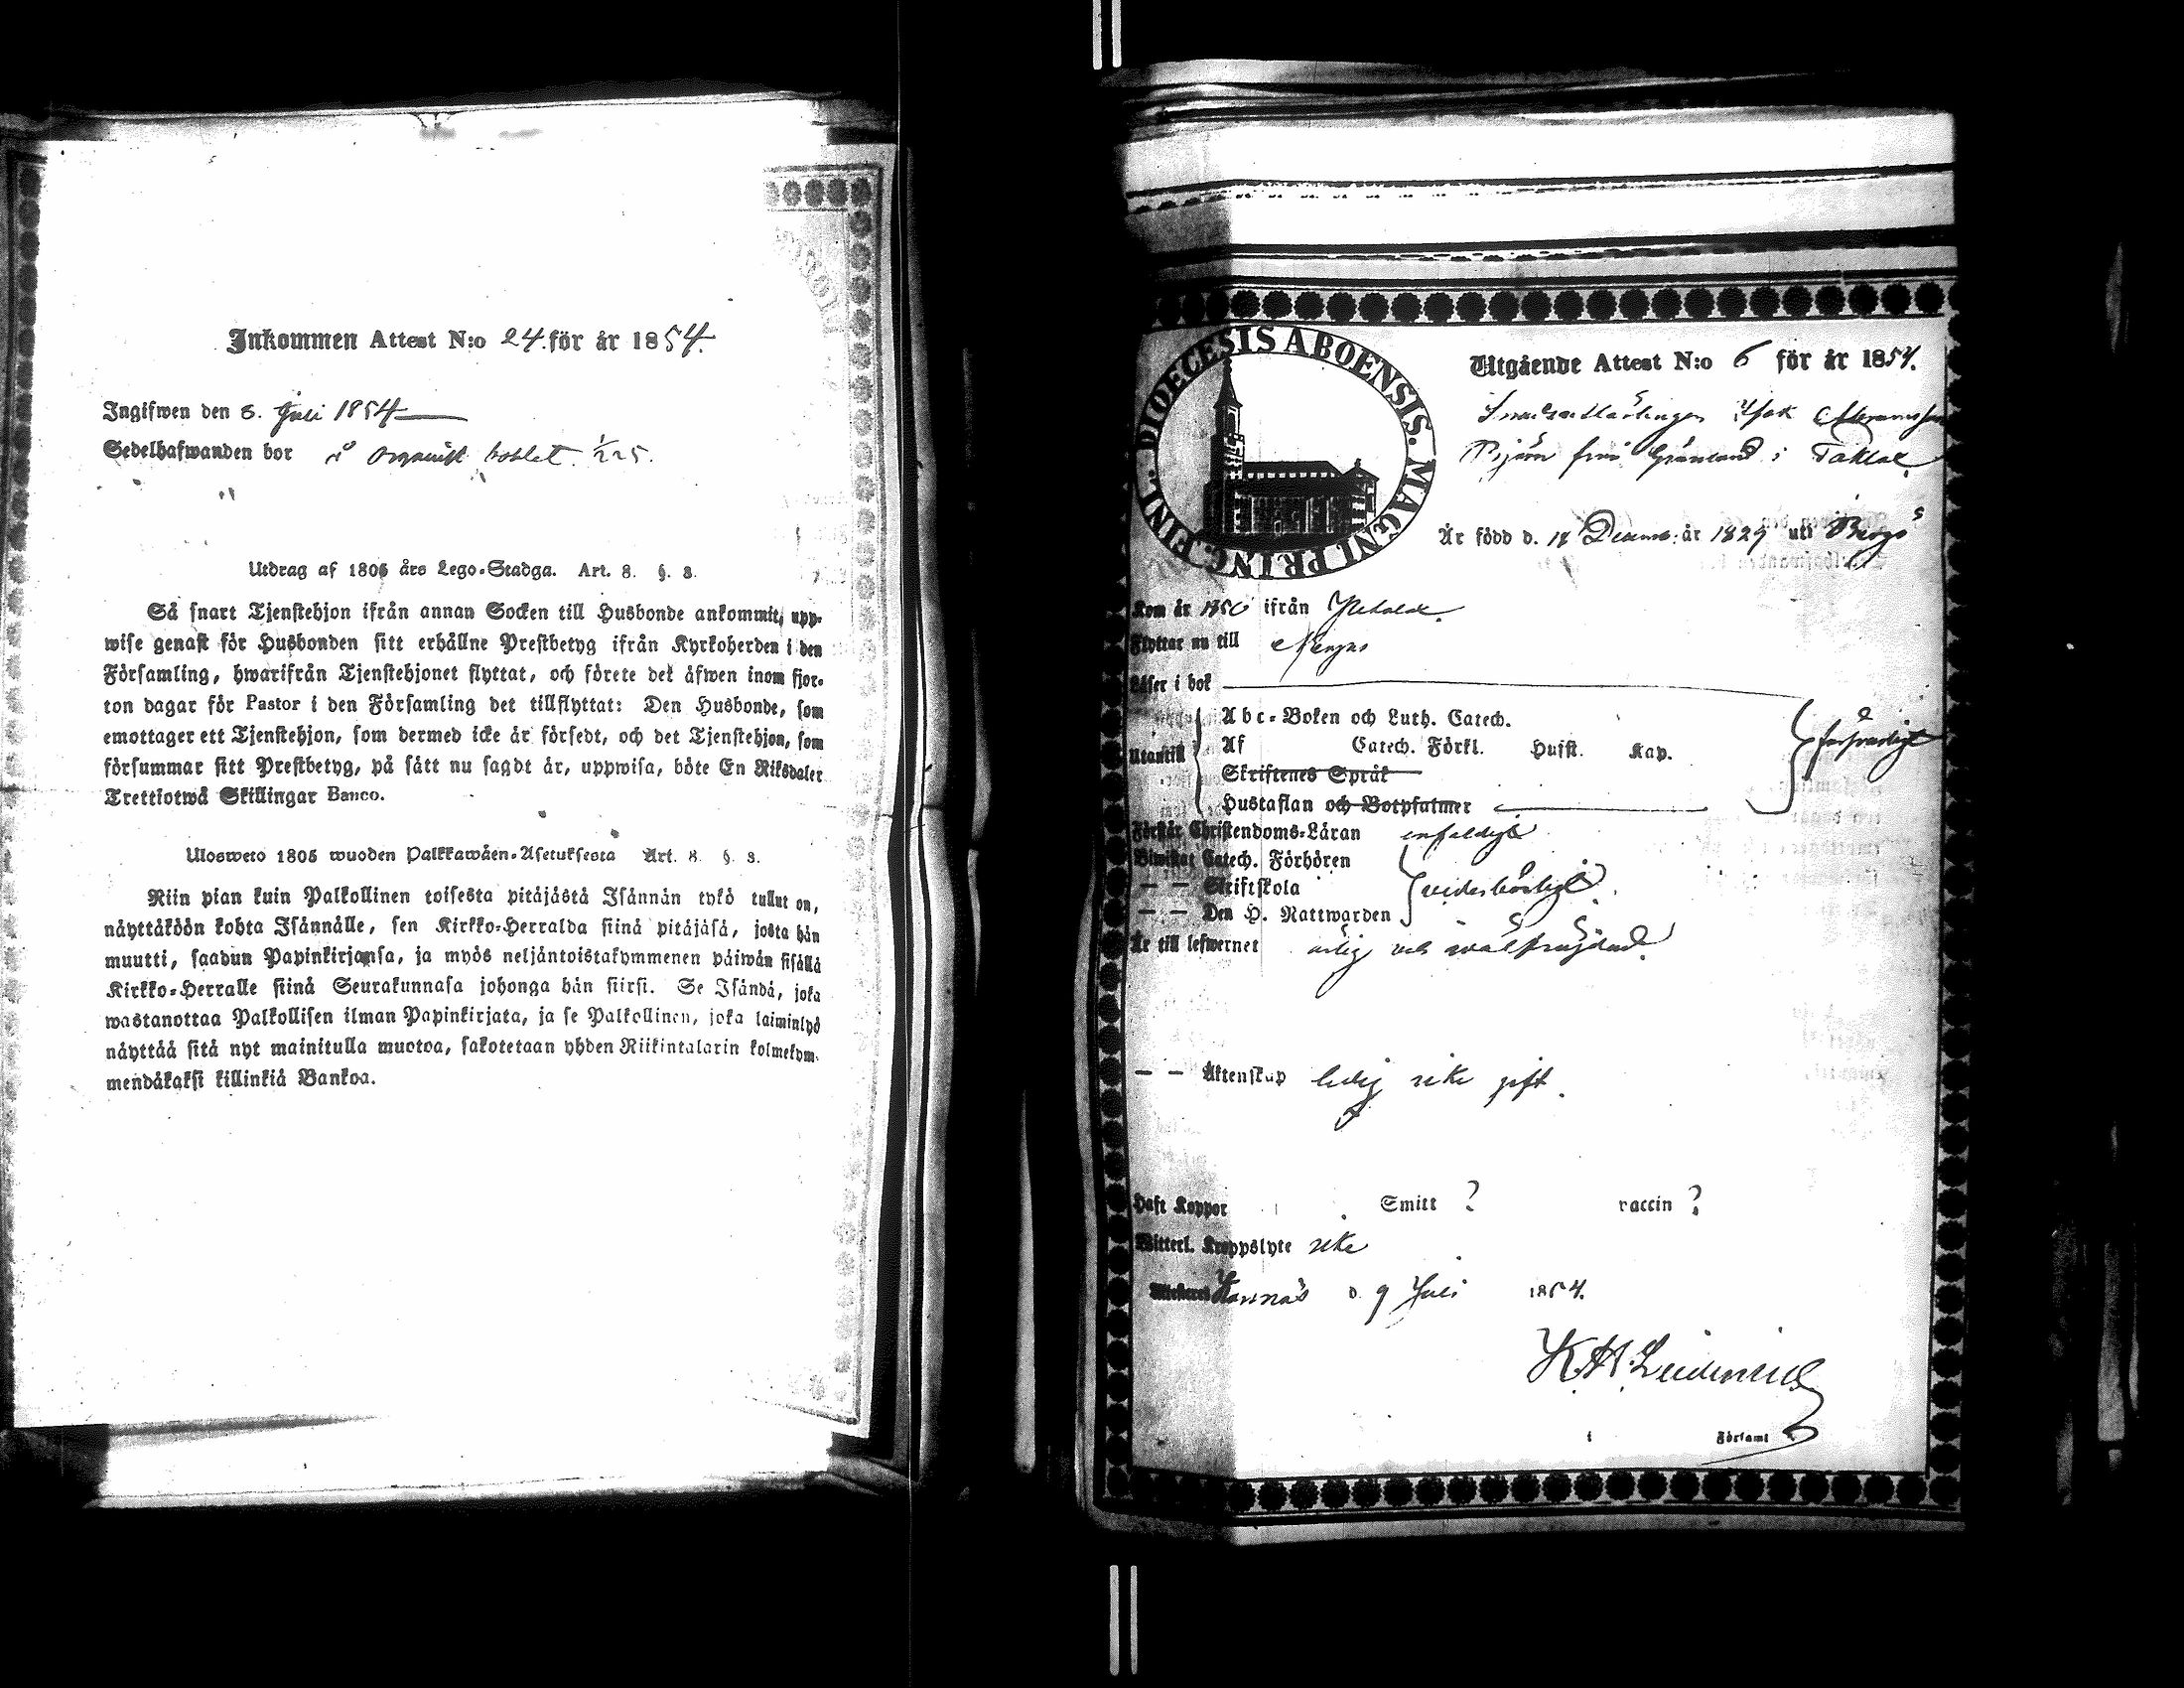 Inkommen Attest N:o 24. för år 1854.
Ingifwen den 8. Juli 1854
Sedelhafwanden bor å boblet
Utdrag af 1805 års Lego-Stadga. Art. 8. §. 3.
Så snart Tjenstehjon ifrån annan Socken till Husbonde ankommit, upp-
wise genast för Husbonden sitt erhållne Prestbetyg ifrån Kyrkoherden i den
Församling, hwarifrån Tjenstehjonet flyttat, och förete det äfwen inom fjor-
ton dagar för Pastor i den Församling det tillflyttat: Den Husbonde, som
emottager ett Tjenstehjon, som dermed icke är försedt, och det Tjenstehjon, som
försummar sitt Prestbetyg, på sätt nu sagdt är, uppwisa, böte En Riksdaler
Trettiotwå Skillingar Banco.
Uloswetо 1805 wuoden Palkkawäen-Asetuksesta Art. 8. §. 3.
Niin pian kuin Palkollinen toisesta pitäjästä Isännän tykö tullut on,
näyttäköön kohta Isännälle, sen Kirkko-Herralda siinä pitäjäsä, josta hän
muutti, saadun Papinkirjansa, ja myös neljäntoistakymmenen päiwän sisällä
Kirkko-Herralle siinä Seurakunnasa johonga hän siirsi. Se Isändä, joka
wastanottaa Palkollisen ilman Papinkirjata, ja se Palkollinen, joka laiminlyö
näyttää sitä nyt mainitulla muotoa, sakotetaan yhden Riikintalarin kolmekym-
mendäkaksi killinkiä Bankoa.
FINL. DIOECESIS ABOENSIS. MAGNI PRINC.
Utgående Attest N:o 6 för år 1854.
Isak Abramsson
Björn från Grönland i Taklax
Är född d. 18 Decemb: år 1829 uti Bergö
Kom år 1850 ifrån
Flyttar nu till
Läser i bok
Abc-Boken och Luth. Catech.
Utantill Af Catech. Förkl. Hufst. Kap. försvarligt
Skriftenes Språk
Hustaflan och Botpsalmer
Förstår Christendoms-Läran enfaldigt
Biwistat Catech. Förhören
— — Skriftskola vederbörligt.
— — Den H. Nattwarden
Är till lefwernet ärlig och wälfrejdad.
— — Äktenskap ledig icke gift.
Haft Koppor Smitt ? vaccin ?
Witterl. Kroppslyte icke
d. 9 Juli 1854.
i Församl